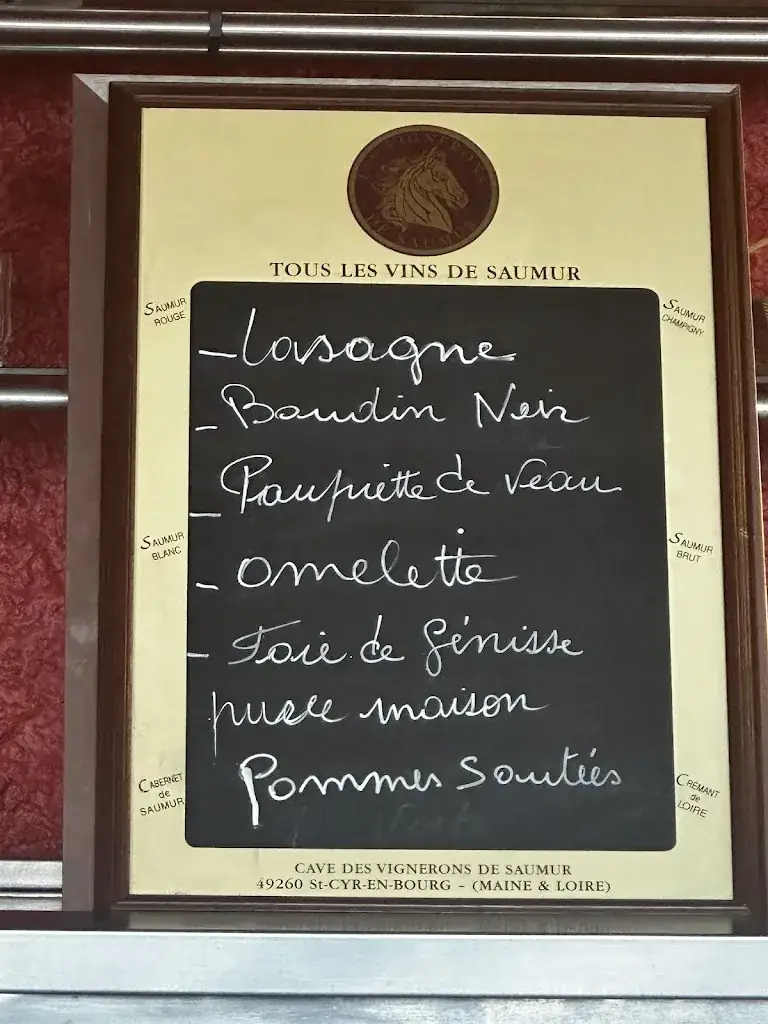 DE SAUMUR
TOUS LES VINS DE SAUMUR
SAUMUR
ROUGE
SAUMUR
CHAMPIGNY
- Lasagne
- Boudin Noir
- Paupiette de Veau
SAUMUR
BLANC
SAUMUR
BRUT
- omelette
- Foie de Génisse
purée maison
Pommes Soutées
CABERNET
de
SAUMUR
CRÉMANT
de
LOIRE
CAVE DES VIGNERONS DE SAUMUR
49260 St-CYR-EN-BOURG - (MAINE & LOIRE)